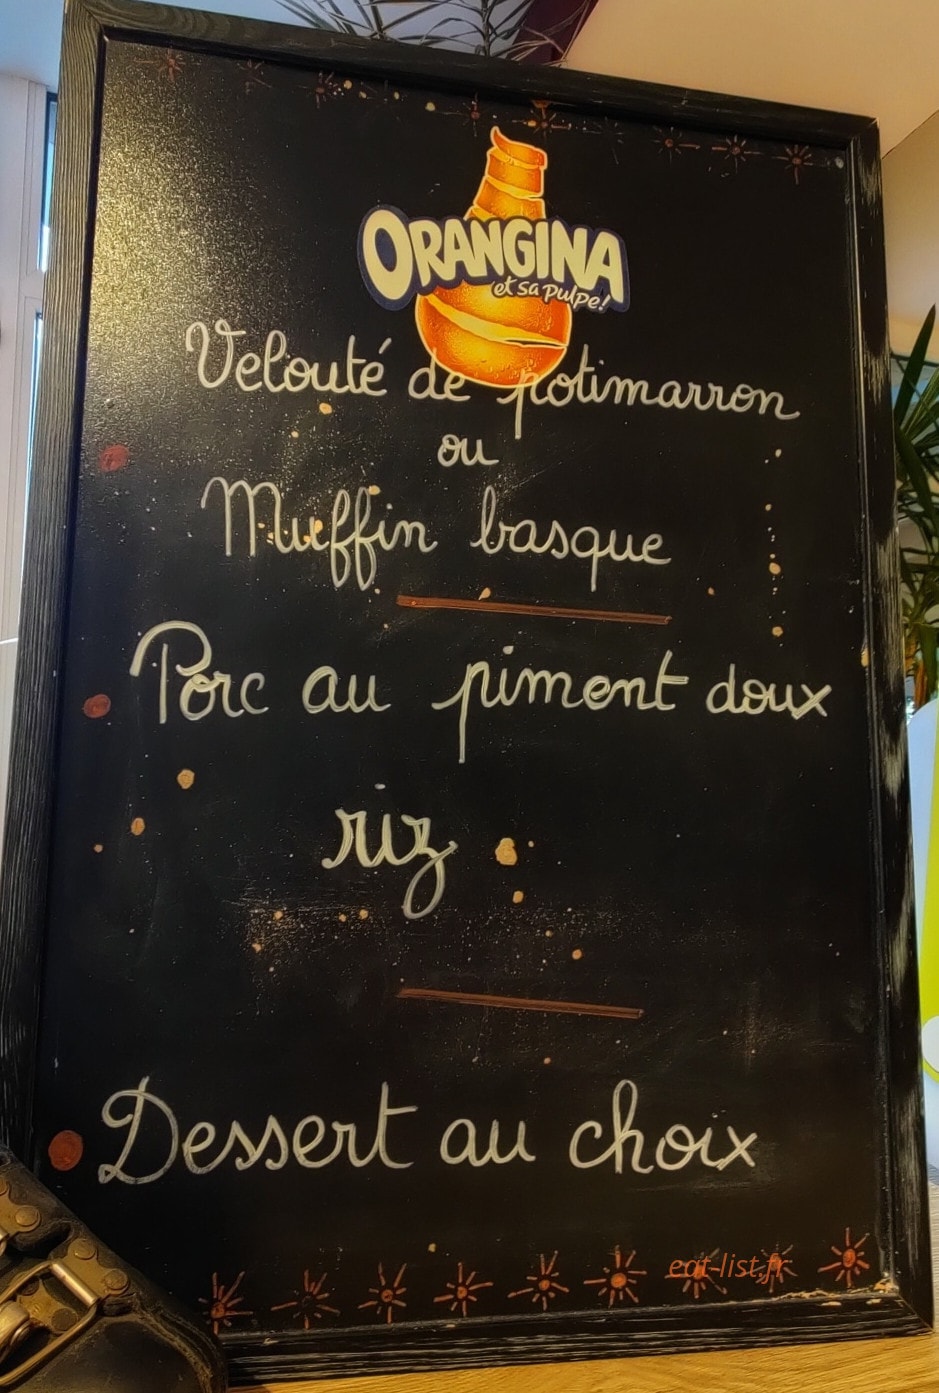 ORANGINA
et sa pulpe!
Velouté de potimarron
ou
Muffin basque
Porc au piment doux
riz
Dessert au choix
eat-list.fr